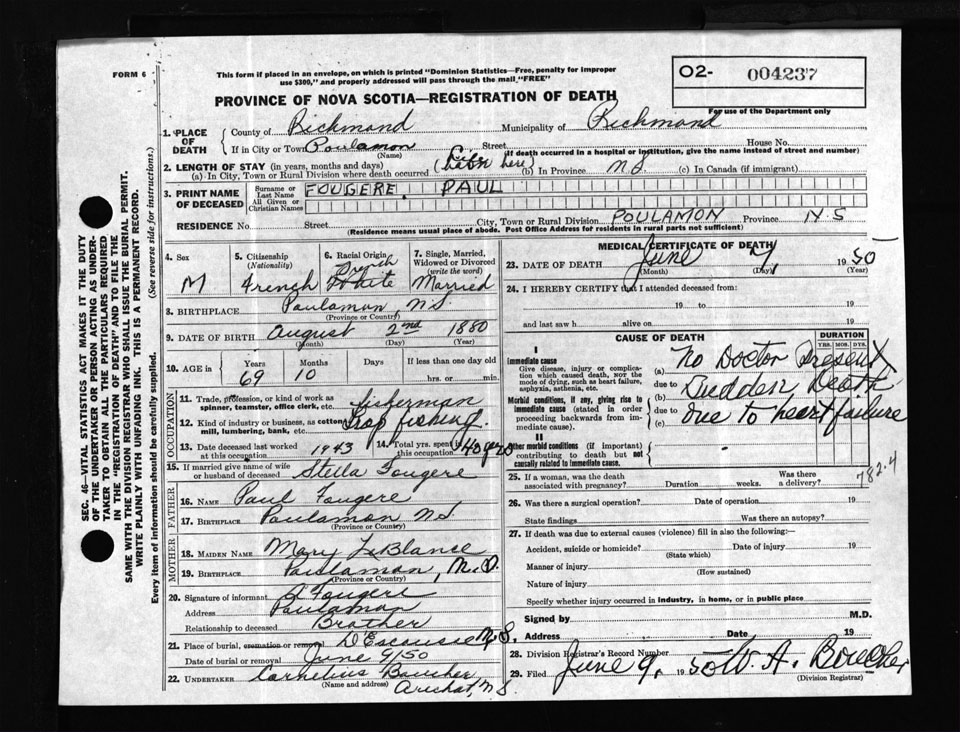 FORM 6
This form if placed in an envelope, on which is printed "Dominion Statistics—Free, penalty for improper
use $300," and properly addressed will pass through the mail "FREE"
O2- 004237
For use of the Department only
PROVINCE OF NOVA SCOTIA—REGISTRATION OF DEATH
1. PLACE OF DEATH County of Richmond Municipality of Richmond
If in City or Town Poulamon Street House No.
(Name) (If death occurred in a hospital or institution, give the name instead of street and number)
2. LENGTH OF STAY (in years, months and days)
(a) In City, Town or Rural Division where death occurred (born here) (b) In Province N.S. (c) In Canada (if immigrant)
3. PRINT NAME OF DECEASED Surname or Last Name FOUGERE, PAUL
All Given or Christian Names
RESIDENCE No. Street City, Town or Rural Division POULAMON Province N.S
(Residence means usual place of abode. Post Office Address for residents in rural parts not sufficient)
4. Sex M
5. Citizenship (Nationality) French
6. Racial Origin French White
7. Single, Married, Widowed or Divorced (write the word) Married
8. BIRTHPLACE Poulamon N.S.
(Province or Country)
9. DATE OF BIRTH August 2nd 1880
(Month) (Day) (Year)
10. AGE in Years 69 Months 10 Days If less than one day old hrs. or min.
OCCUPATION
11. Trade, profession, or kind of work as spinner, teamster, office clerk, etc. fisherman
12. Kind of industry or business, as cotton mill, lumbering, bank, etc. Trap fishing
13. Date deceased last worked at this occupation 1943
14. Total yrs. spent in this occupation 40
15. If married give name of wife or husband of deceased Stella Fougere
FATHER
16. NAME Paul Fougere
17. BIRTHPLACE Poulamon N.S
(Province or Country)
MOTHER
18. MAIDEN NAME Mary LeBlanc
19. BIRTHPLACE Poulamon, N.S.
(Province or Country)
20. Signature of informant Fougere
Address Poulamon
Relationship to deceased Brother
21. Place of burial, cremation or removal D'Escousse N.S.
Date of burial or removal June 9/50
22. UNDERTAKER Cornelius Boucher
(Name and address) Arichat, N.S.
MEDICAL CERTIFICATE OF DEATH
23. DATE OF DEATH June 7, 1950
(Month) (Day) (Year)
24. I HEREBY CERTIFY that I attended deceased from:
19 to 19
and last saw h alive on 19
CAUSE OF DEATH
DURATION
YRS. MOS. DYS.
I
Immediate cause
Give disease, injury or complication which caused death, NOT the mode of dying, such as heart failure, asphyxia, asthenia, etc.
(a) No Doctor Present
due to
Morbid conditions, if any, giving rise to immediate cause (stated in order proceeding backwards from immediate cause).
(b) Sudden Death
due to
(c) due to heart failure
II
Other morbid conditions (if important) contributing to death but not causally related to immediate cause.
782.4
25. If a woman, was the death associated with pregnancy? Duration weeks. Was there a delivery?
26. Was there a surgical operation? Date of operation 19
State findings Was there an autopsy?
27. If death was due to external causes (violence) fill in also the following:—
Accident, suicide or homicide? Date of injury 19
(State which)
Manner of injury
(How sustained)
Nature of injury
Specify whether injury occurred in industry, in home, or in public place
Signed by M.D.
Address Date 19
28. Division Registrar's Record Number
29. Filed June 9, 1950 W. A. Boucher
(Division Registrar)
SEC. 46—VITAL STATISTICS ACT MAKES IT THE DUTY
OF THE UNDERTAKER OR PERSON ACTING AS UNDERTAKER TO OBTAIN ALL THE PARTICULARS REQUIRED
IN THE "REGISTRATION OF DEATH" AND TO FILE THE
SAME WITH THE DIVISION REGISTRAR WHO SHALL ISSUE THE BURIAL PERMIT.
WRITE PLAINLY WITH UNFADING INK. THIS IS A PERMANENT RECORD.
Every item of information should be carefully supplied. (See reverse side for instructions.)